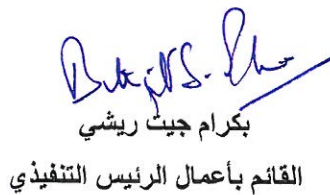 بكرام جيت ريشي
القائم بأعمال الرئيس التنفيذي